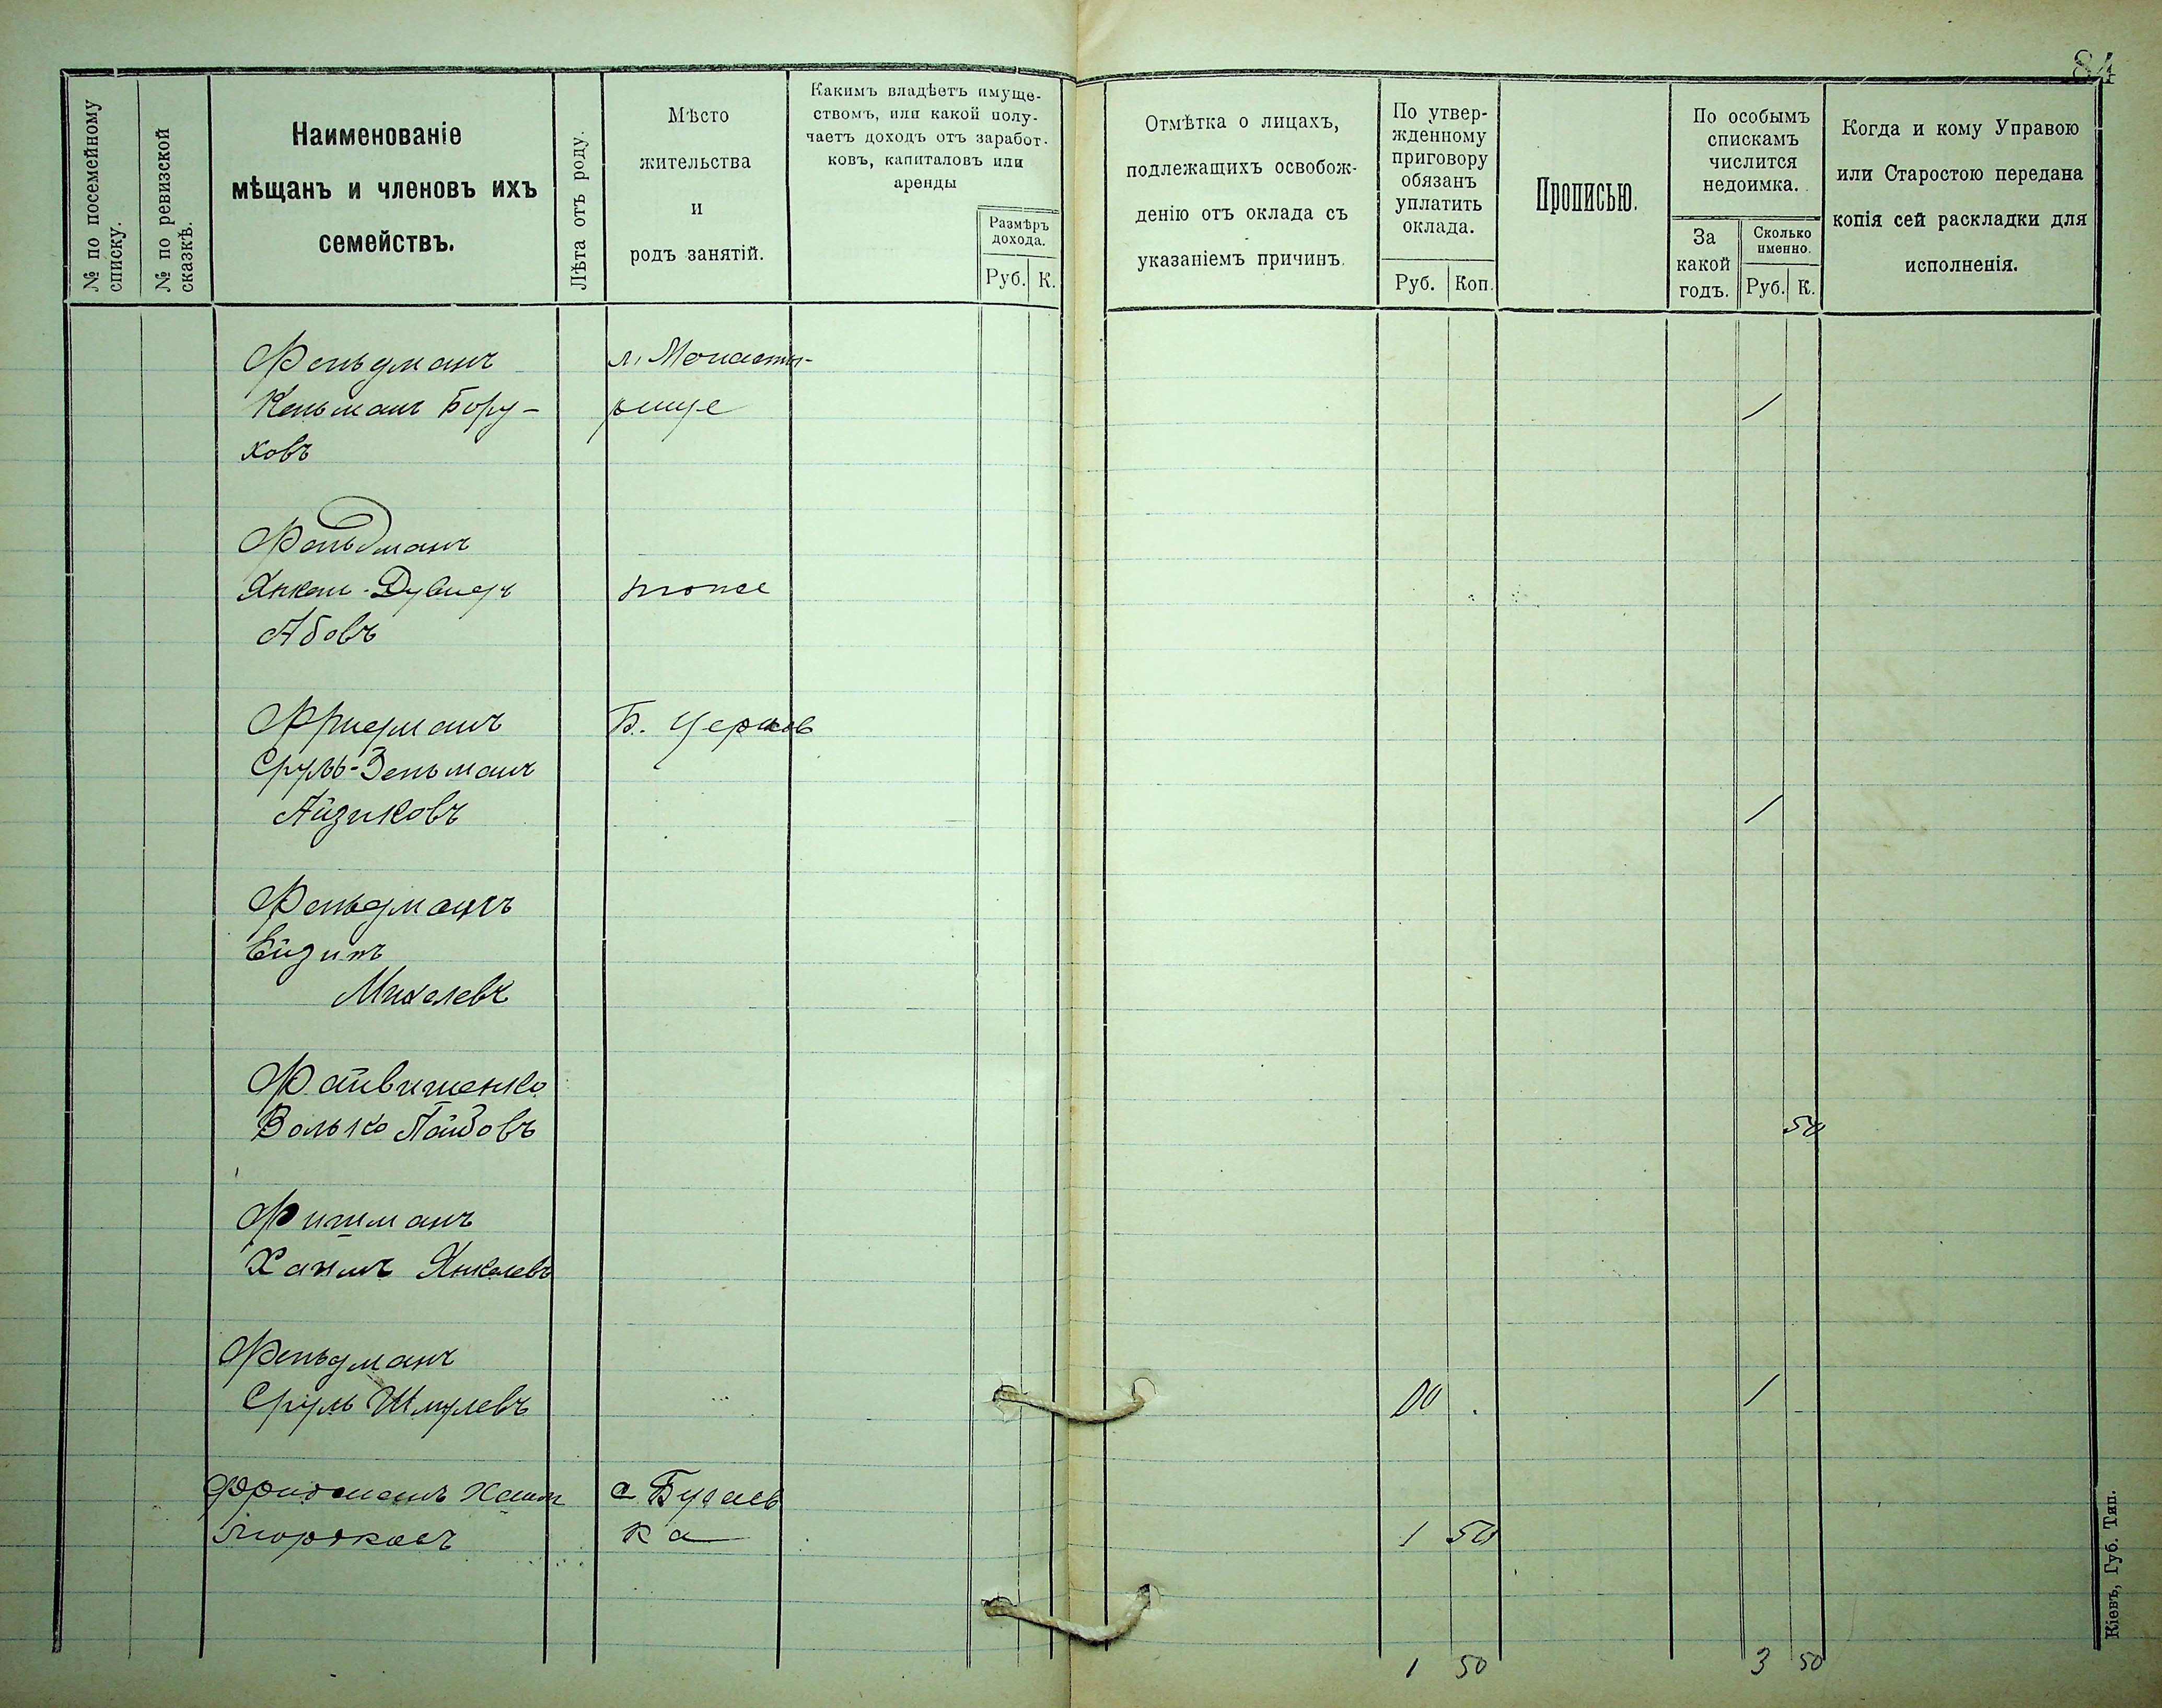 84
№ по посемейному списку.
№ по ревизской сказкѣ.
Наименованіе
мѣщанъ и членовъ ихъ
семействъ.
Лѣта отъ роду.
Мѣсто
жительства
и
родъ занятій.
Какимъ владѣетъ имуще-
ствомъ, или какой полу-
чаетъ доходъ отъ заработ-
ковъ, капиталовъ или
аренды
Размѣръ
дохода.
Руб. К.
Отмѣтка о лицахъ,
подлежащихъ освобож-
денію отъ оклада съ
указаніемъ причинъ.
По утвер-
жденному
приговору
обязанъ
уплатить
оклада.
Руб. Коп.
Прописью.
По особымъ
спискамъ
числится
недоимка.
За
какой
годъ.
Сколько
именно.
Руб. К.
Когда и кому Управою
или Старостою передана
копія сей раскладки для
исполненія.
Фельдманъ м. Монасты-
Кельманъ Бору- рище 1
ховъ
Фельдманъ
Янкель-Дувидъ тоже
Абовъ
Фридманъ Б. Церковь
Сруль-Зельманъ
Айзиковъ 1
Фельдманъ
Михелевъ
Файвишенко
Волько 50
Фишманъ
Хаимъ Янкелевъ
Фельдманъ
Сруль Шмулевъ 1
Фридманъ Хаим с. Бугаев
Мордковъ ка 1 50
1 50 3 50
Кіевъ, Губ. Тип.